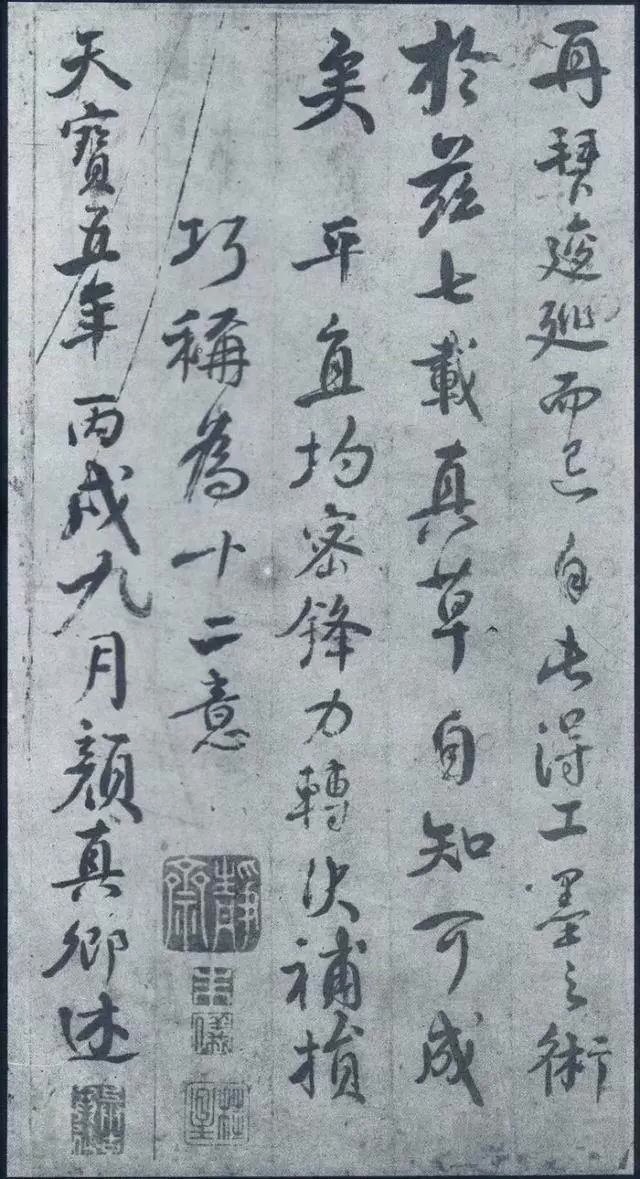 再拜逡巡而退自此得工墨之術
於茲七載真草自知可成
矣 平直均密鋒力轉決補損
巧稱為十二意
天寶五年丙戌九月顏真卿述
靜齋